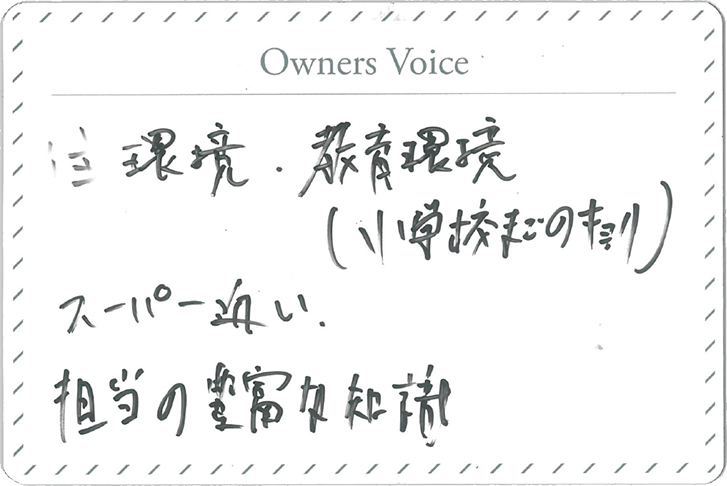 Owners Voice
住環境．教育環境
(小学校までの距離)
スーパー近い．
担当の豊富な知識